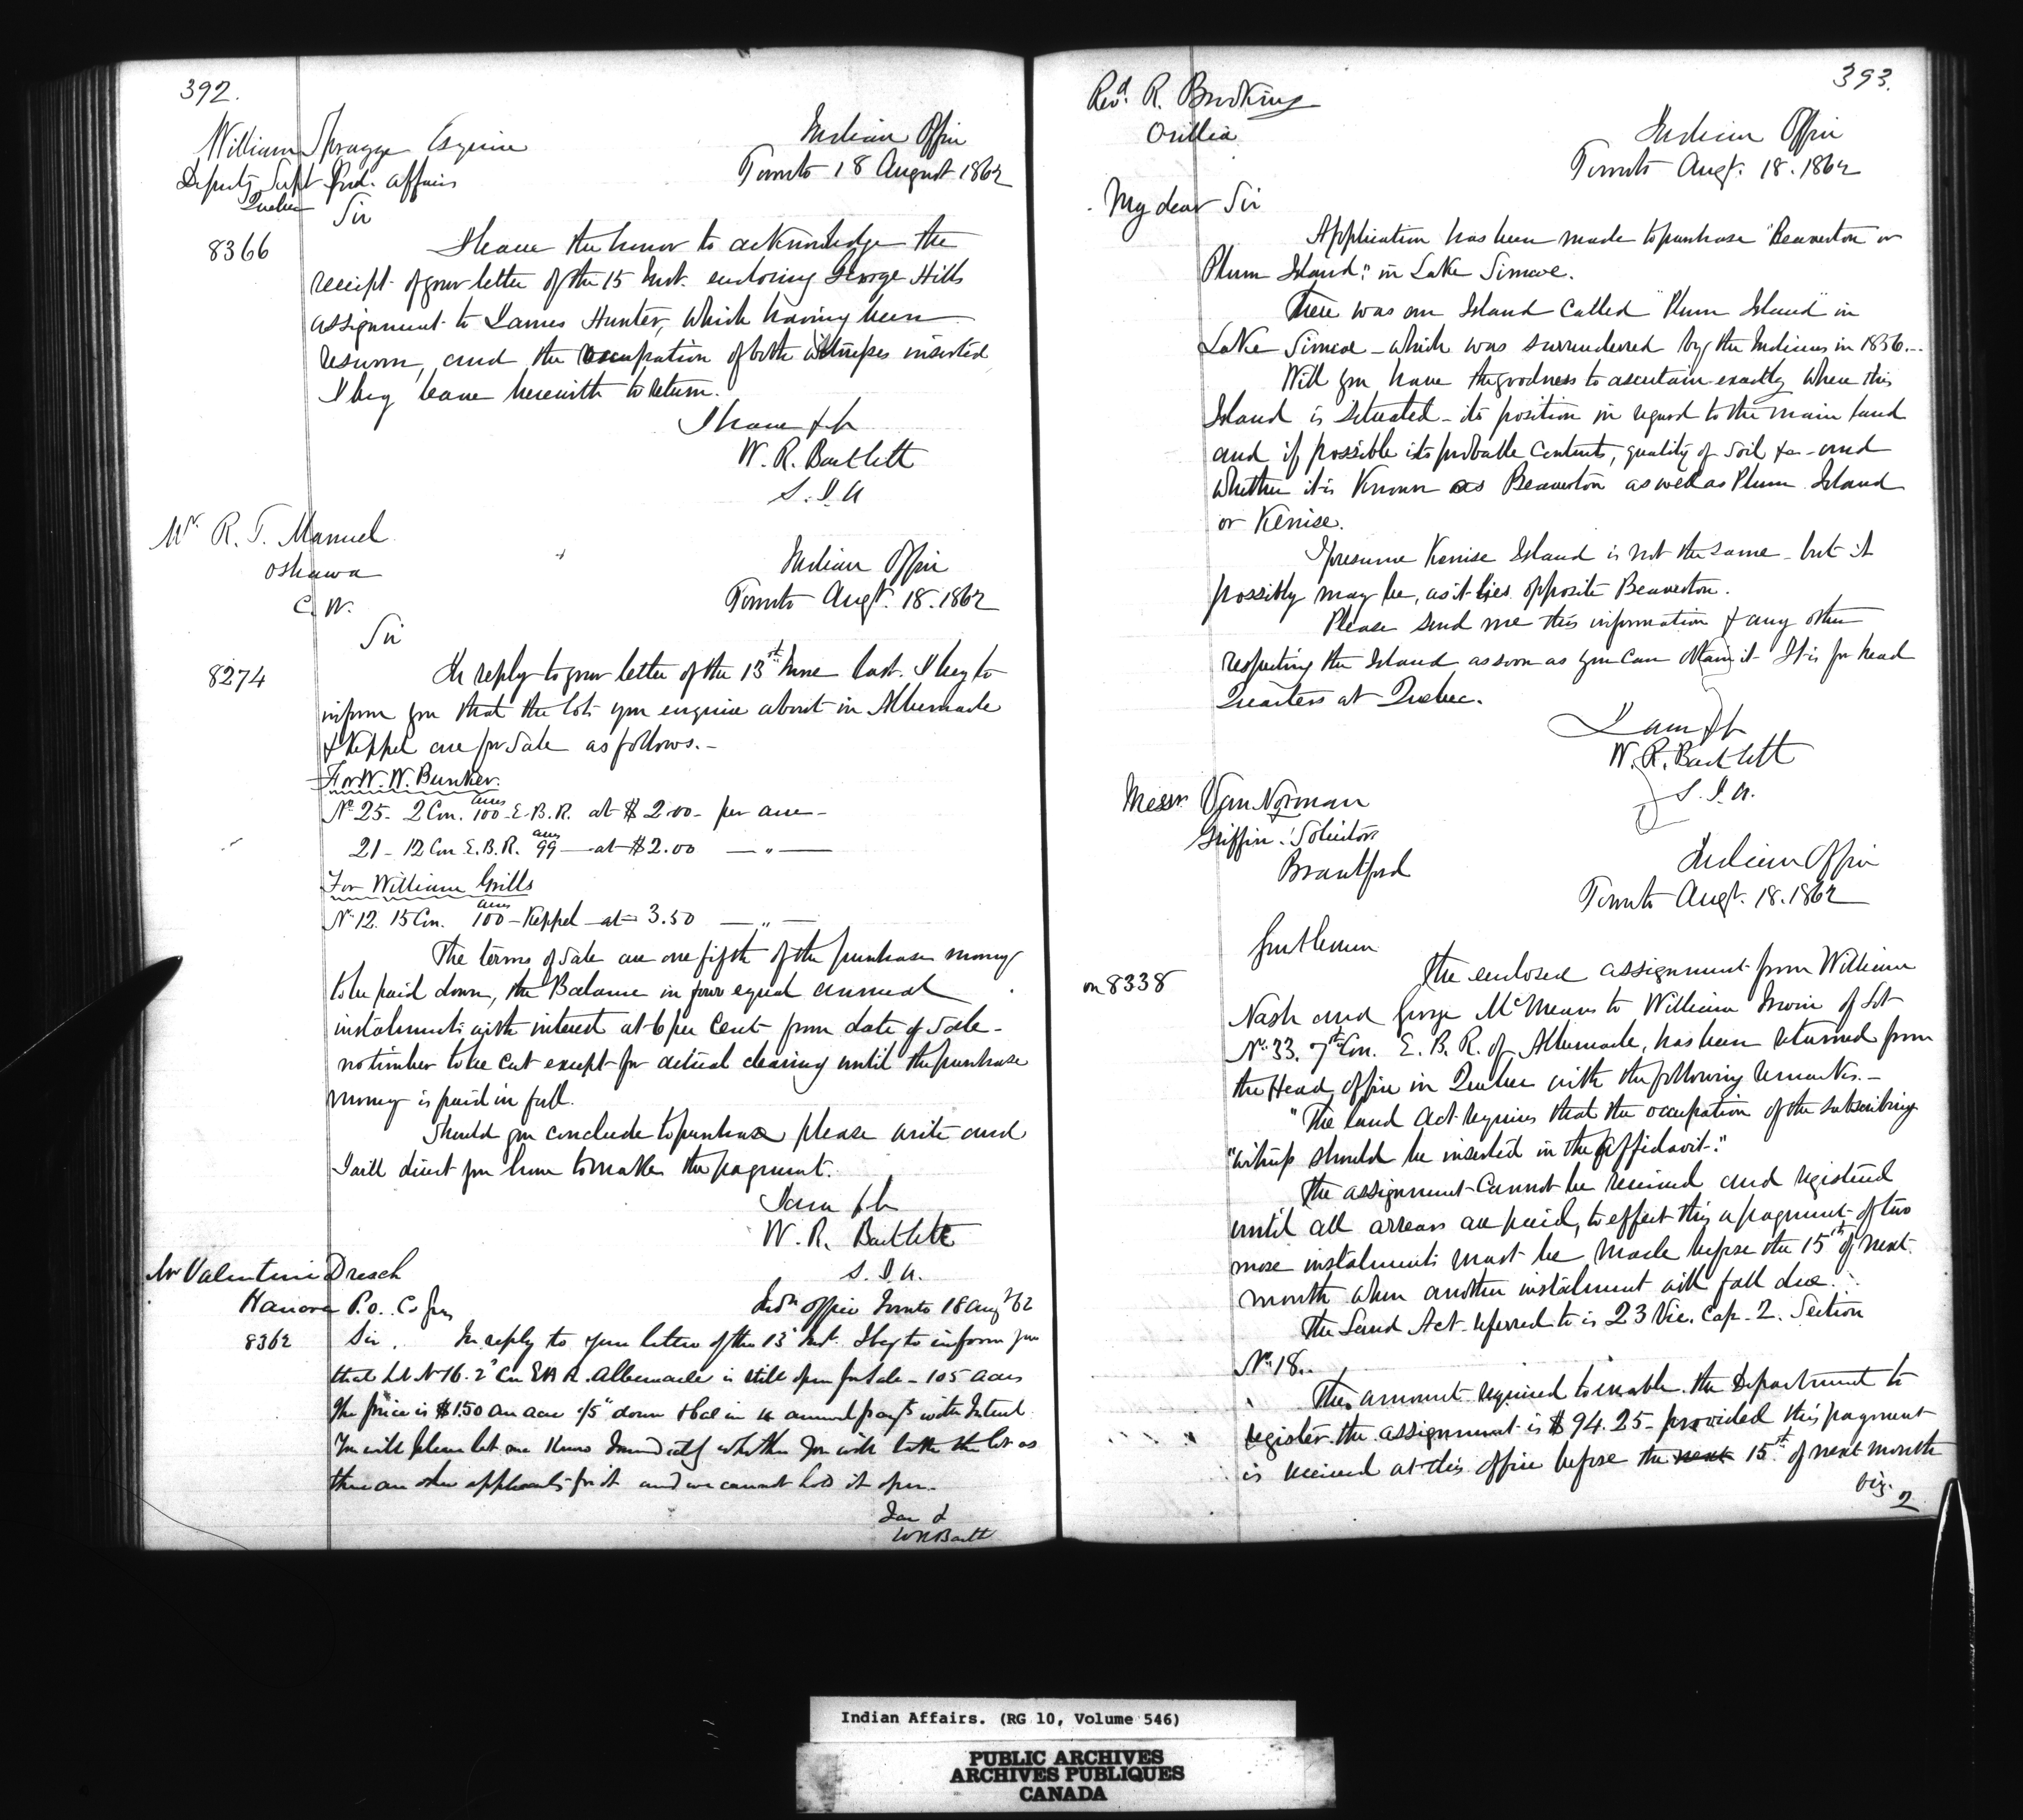 392.
William Spragge Esquire
Deputy Supt Ind. Affairs
Quebec
Indian Office
Toronto 18 August 1862
Sir
8366
I have the honor to acknowledge the
receipt of your letter of the 15 Inst. enclosing George Hills
assignment to James Hunter, which having been
resworn, and the occupation of both witnesses inserted
I beg leave herewith to return.
I have &c
W. R. Bartlett
S. I. A
Mr R. T. Manuel
Oshawa
C. W.
Indian Office
Toronto Augt. 18. 1862
Sir
8274
In reply to your letter of the 13st June last. I beg to
inform you that the lots you enquire about in Albemarle
& Keppel are for Sale as follows.-
For W. W. Bunker.
No 25- 2 Con. 100 acres E.B.R. at $2.00- per acre-
21- 12 Con E.B.R. 99 acres - at $2.00 — " —
For William Grills
No 12. 15 Con. 100 acres - Keppel - at - 3.50 — " —
The terms of Sale are one fifth of the purchase money
to be paid down, the Balance in four equal annual
instalments with interest at 6 per Cent from date of Sale-
no timber to be cut except for actual clearing until the purchase
money is paid in full.
Should you conclude to purchase please write and
I will direct you how to make the payment.
I am &c
W. R. Bartlett
S. I. A.
Mr Valentine Dresch
Hanover P.O. Co Grey
Indn Office Toronto 18 Augt 62
8362
Sir. In reply to your letter of the 13th Inst. I beg to inform you
that Lot No 16. 2d Con E B R. Albemarle is still open for Sale - 105 acres
The price is $1.50 an acre 1/5th down & bal in 4 annual payts with Interest
You will please let me know Immediately whether you will take the lot as
there are other applicants for it and we cannot hold it open.
I am &
WR Bartt
393.
Revd. R. Brooking
Orillia
Indian Office
Toronto Augt. 18. 1862
My dear Sir
Application has been made to purchase "Beaverton or
Plum Island", in Lake Simcoe.
There was one Island called "Plum Island" in
Lake Simcoe - which was surrendered by the Indians in 1856.-
Will you have the goodness to ascertain exactly where this
Island is situated - its position in regard to the main land
and if possible its probable contents, quality of soil &c - and
whether it is Known as Beaverton as well as Plum Island
or Kenise.
I presume Kenise Island is not the same - but it
possibly may be, as it lies opposite Beaverton.
Please send me this information & any other
respecting the Island as soon as you can obtain it. It is for head
Quarters at Quebec.
I am &c
W. R. Bartlett
S. I. A.
Messrs Van Norman
Griffin. Solicitors
Brantford
Indian Office
Toronto Augt. 18. 1862
Gentlemen
on 8338
The enclosed assignment from William
Nash and George McMeans to William Irwin of Lot
No. 33. 7th Con. E. B. R. of Albemarle, has been returned from
the Head Office in Quebec with the following remarks.-
"The land Act requires that the occupation of the subscribing
"witness should be inserted in the affidavit."
The assignment cannot be received and registered
until all arrears are paid, to effect this a payment of two
more instalments must be made before the 15th of next
month when another instalment will fall due.
The Land Act referred to is 23 Vic. Cap. 2. Section
No. 18..
The amount required to enable the Department to
register the assignment is $94.25 - provided this payment
is received at this office before the next 15st of next month
viz.
2
Indian Affairs. (RG 10, Volume 546)
PUBLIC ARCHIVES
ARCHIVES PUBLIQUES
CANADA